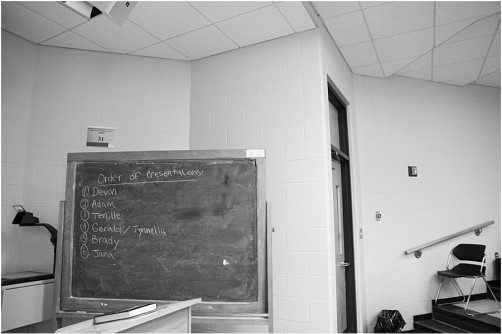 Order of Presentations:
① Devon
② Adam
③ Tenille
④ Gerald / Tynnelia
⑤ Brady
⑥ Jana